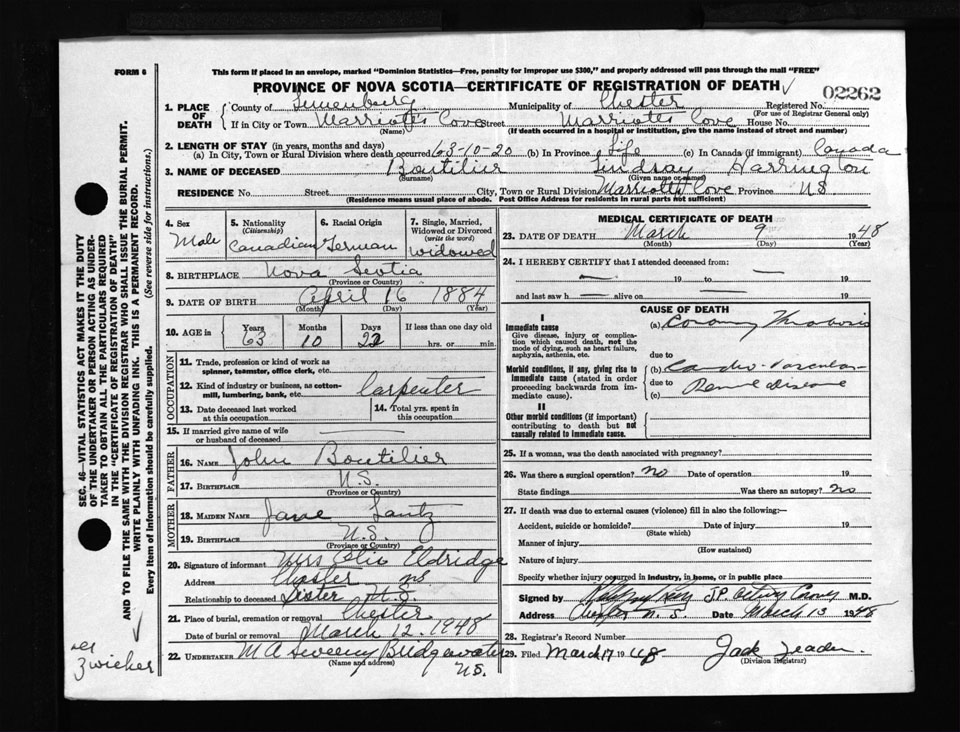 FORM 6
This form if placed in an envelope, marked "Dominion Statistics—Free, penalty for improper use $300," and properly addressed will pass through the mail "FREE"
PROVINCE OF NOVA SCOTIA—CERTIFICATE OF REGISTRATION OF DEATH
02262
1. PLACE OF DEATH
County of Lunenburg Municipality of Chester Registered No.
(For use of Registrar General only)
If in City or Town Marriotts Cove Street Marriotts Cove House No.
(Name) (If death occurred in a hospital or institution, give the name instead of street and number)
2. LENGTH OF STAY (in years, months and days)
(a) In City, Town or Rural Division where death occurred 63-10-20 (b) In Province Life (c) In Canada (if immigrant) Canada
3. NAME OF DECEASED Boutilier Lindsay Harrington
(Surname) (Given name or names)
RESIDENCE No. Street City, Town or Rural Division Marriotts Cove Province NS
(Residence means usual place of abode. Post Office Address for residents in rural parts not sufficient)
4. Sex Male
5. Nationality (Citizenship) Canadian
6. Racial Origin German
7. Single, Married, Widowed or Divorced (write the word) Widowed
8. BIRTHPLACE Nova Scotia
(Province or Country)
9. DATE OF BIRTH April 16 1884
(Month) (Day) (Year)
10. AGE in Years Months Days If less than one day old
63 10 22 hrs. or min.
OCCUPATION
11. Trade, profession or kind of work as spinner, teamster, office clerk, etc.
12. Kind of industry or business, as cotton-mill, lumbering, bank, etc. Carpenter
13. Date deceased last worked at this occupation
14. Total yrs. spent in this occupation
15. If married give name of wife or husband of deceased
FATHER
16. NAME John Boutilier
17. BIRTHPLACE N.S.
(Province or Country)
MOTHER
18. MAIDEN NAME Jane Lantz
19. BIRTHPLACE N.S.
(Province or Country)
20. Signature of informant Mrs Eldridge
Address Chester NS
Relationship to deceased Sister N.S.
21. Place of burial, cremation or removal Chester
Date of burial or removal March 12, 1948
22. UNDERTAKER M A Sweeny Bridgewater
(Name and address) N.S.
MEDICAL CERTIFICATE OF DEATH
23. DATE OF DEATH March 9 1948
(Month) (Day) (Year)
24. I HEREBY CERTIFY that I attended deceased from:
19 to 19
and last saw h alive on 19
CAUSE OF DEATH
I
Immediate cause
Give disease, injury or complication which caused death, not the mode of dying, such as heart failure, asphyxia, asthenia, etc.
(a) Coronary Thrombosis
due to
Morbid conditions, if any, giving rise to immediate cause (stated in order proceeding backwards from immediate cause).
(b) Cardio-Vascular
due to Renal disease
(c)
II
Other morbid conditions (if important) contributing to death but not causally related to immediate cause.
25. If a woman, was the death associated with pregnancy?
26. Was there a surgical operation? no Date of operation 19
State findings Was there an autopsy? no
27. If death was due to external causes (violence) fill in also the following:—
Accident, suicide or homicide? Date of injury 19
(State which)
Manner of injury
(How sustained)
Nature of injury
Specify whether injury occurred in industry, in home, or in public place
Signed by J.P. acting Coroner M.D.
Address Chester N.S. Date March 13 1948
28. Registrar's Record Number
29. Filed March 17 1948 Jack
(Division Registrar)
SEC. 46—VITAL STATISTICS ACT MAKES IT THE DUTY
OF THE UNDERTAKER OR PERSON ACTING AS UNDER-
TAKER TO OBTAIN ALL THE PARTICULARS REQUIRED
IN THE "CERTIFICATE OF REGISTRATION OF DEATH"
AND TO FILE THE SAME WITH THE DIVISION REGISTRAR WHO SHALL ISSUE THE BURIAL PERMIT.
WRITE PLAINLY WITH UNFADING INK. THIS IS A PERMANENT RECORD.
Every item of information should be carefully supplied. (See reverse side for instructions.)
Zwicker